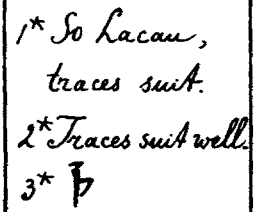 1* So Lacau,
traces suit.
2* Traces suit well.
3*